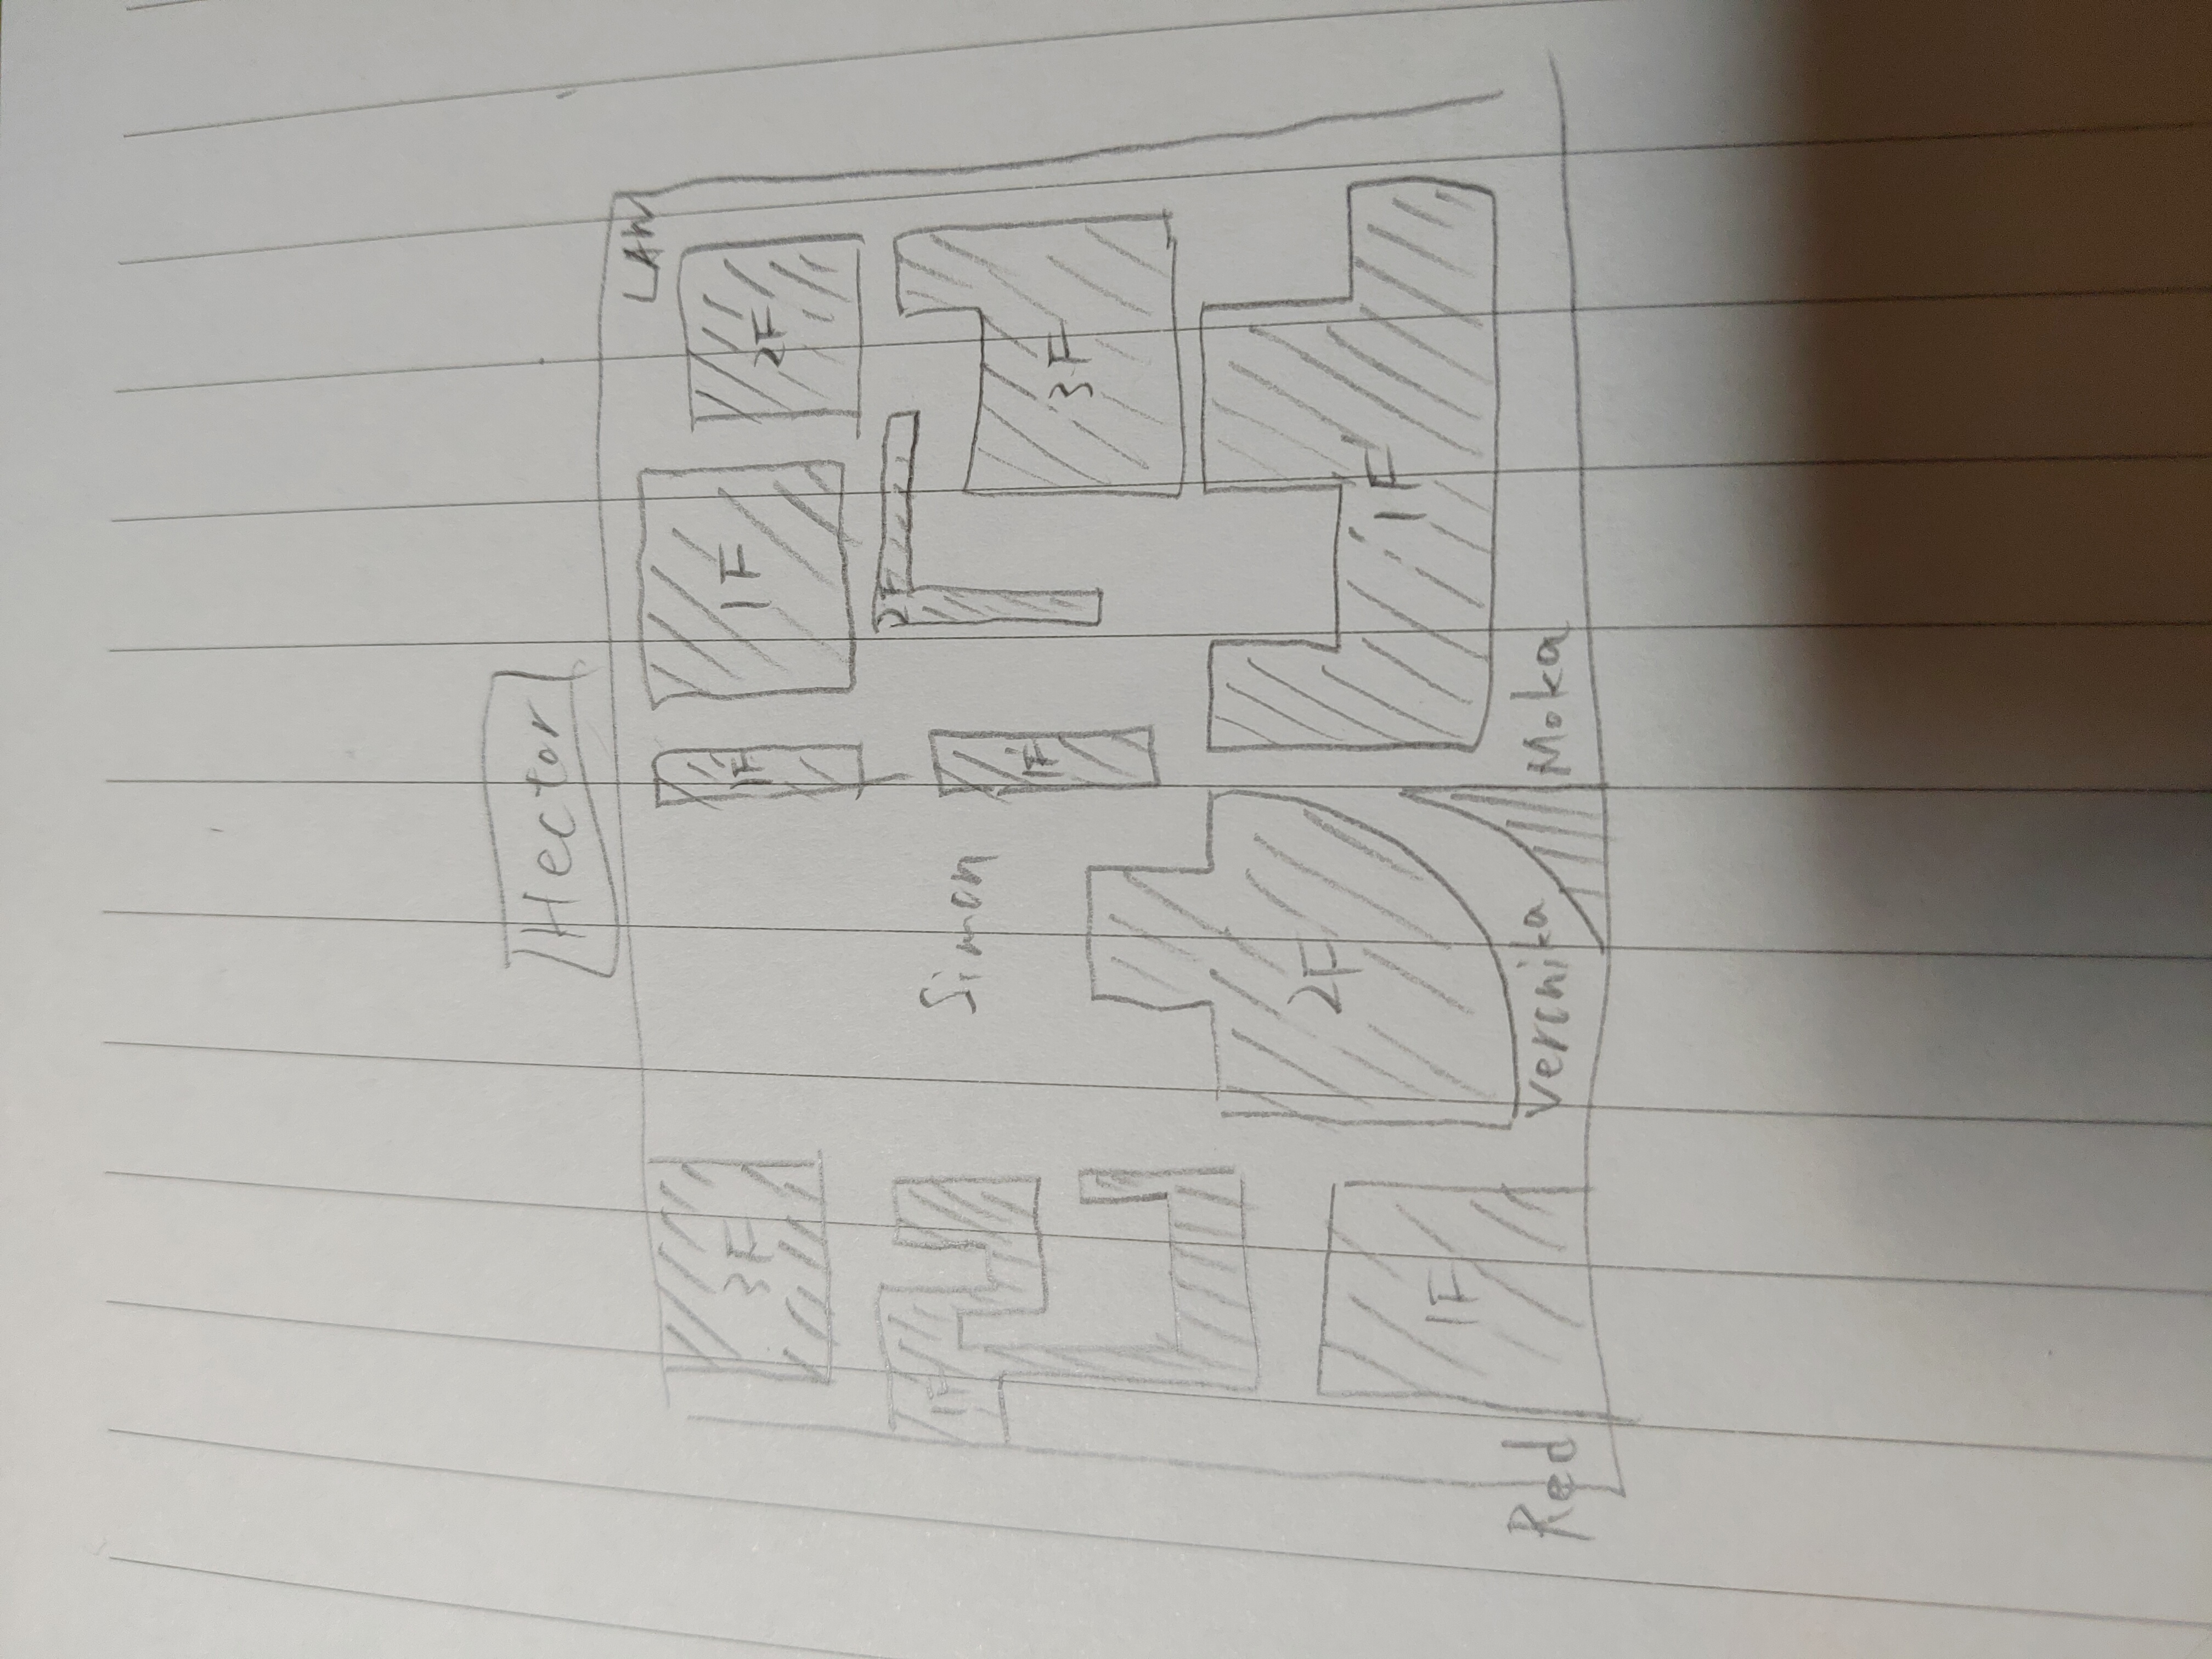 Hector
LAW
3F
1F
1F
2F
1F
2F
Simon
1F
3F
2F
1F
1F
Red
Veronika
Moka